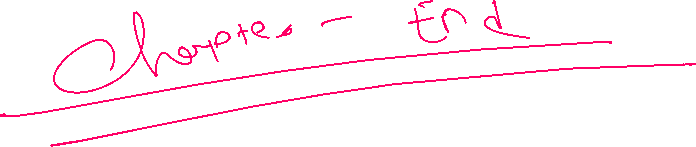 Chapter - End